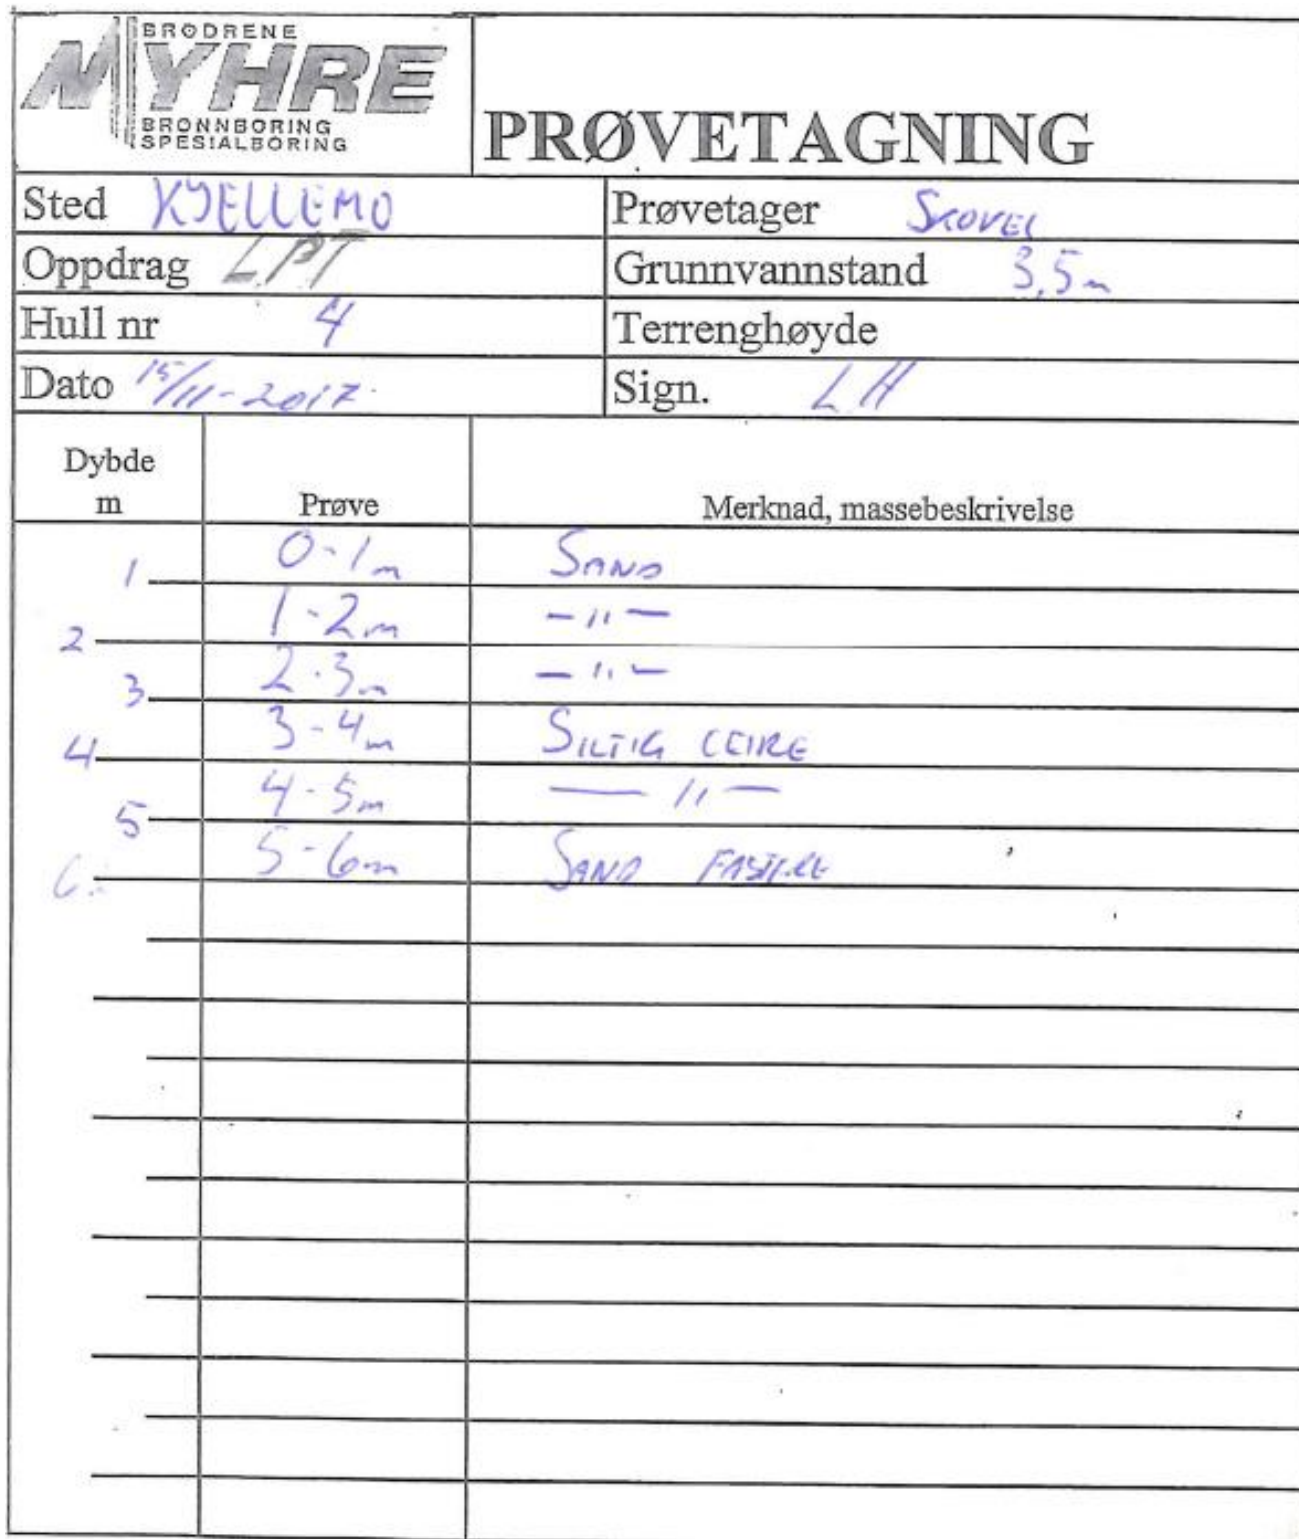 BRØDRENE
MYHRE
BRØNNBORING
SPESIALBORING
PRØVETAGNING
Sted KJELLEMO
Prøvetager SKOVEL
Oppdrag LPT
Grunnvannstand 3,5m
Hull nr 4
Terrenghøyde
Dato 15/11-2017
Sign. LH
Dybde
m Prøve Merknad, massebeskrivelse
1 0-1m SAND
2 1-2m -"-
3 2-3m -"-
4 3-4m SILTIG LEIRE
5 4-5m -"-
6 5-6m SAND FASTERE